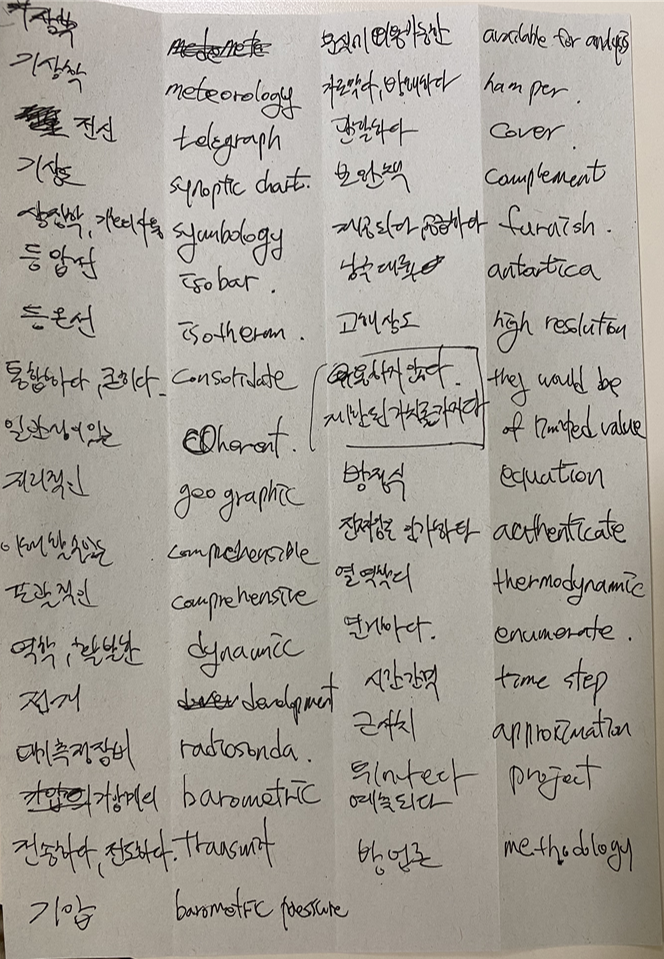 기상학 meteorology
전신 telegraph
기상도 synoptic chart.
symbology
등압선 isobar.
등온선 isotherm.
통합하다, 굳히다. consolidate
일관성이있는 coherent.
지리적인 geographic
이해할수있는 comprehensible
포괄적인 comprehensive
역학, 활발한 dynamic
전개 development
대기측정장비 radiosonda.
기압계의 barometric
전송하다, 전도하다. transmit
기압 barometric pressure
분석이 이용가능한 available for analysis
가로막다, 방해하다 hamper.
관할하다 cover.
보완책 complement
제공되다, 공급하다 furnish.
남극대륙 antartica
고해상도 high resolution
유용하지 않다. they would be
제한된 가치를 가지다 of limited value
방정식 equation
진짜임을 인가하다 authenticate
열역학의 thermodynamic
열거하다. enumerate.
시간간격 time step
근사치 approximation
튀어나오다 project
예측되다
방법론 methodology